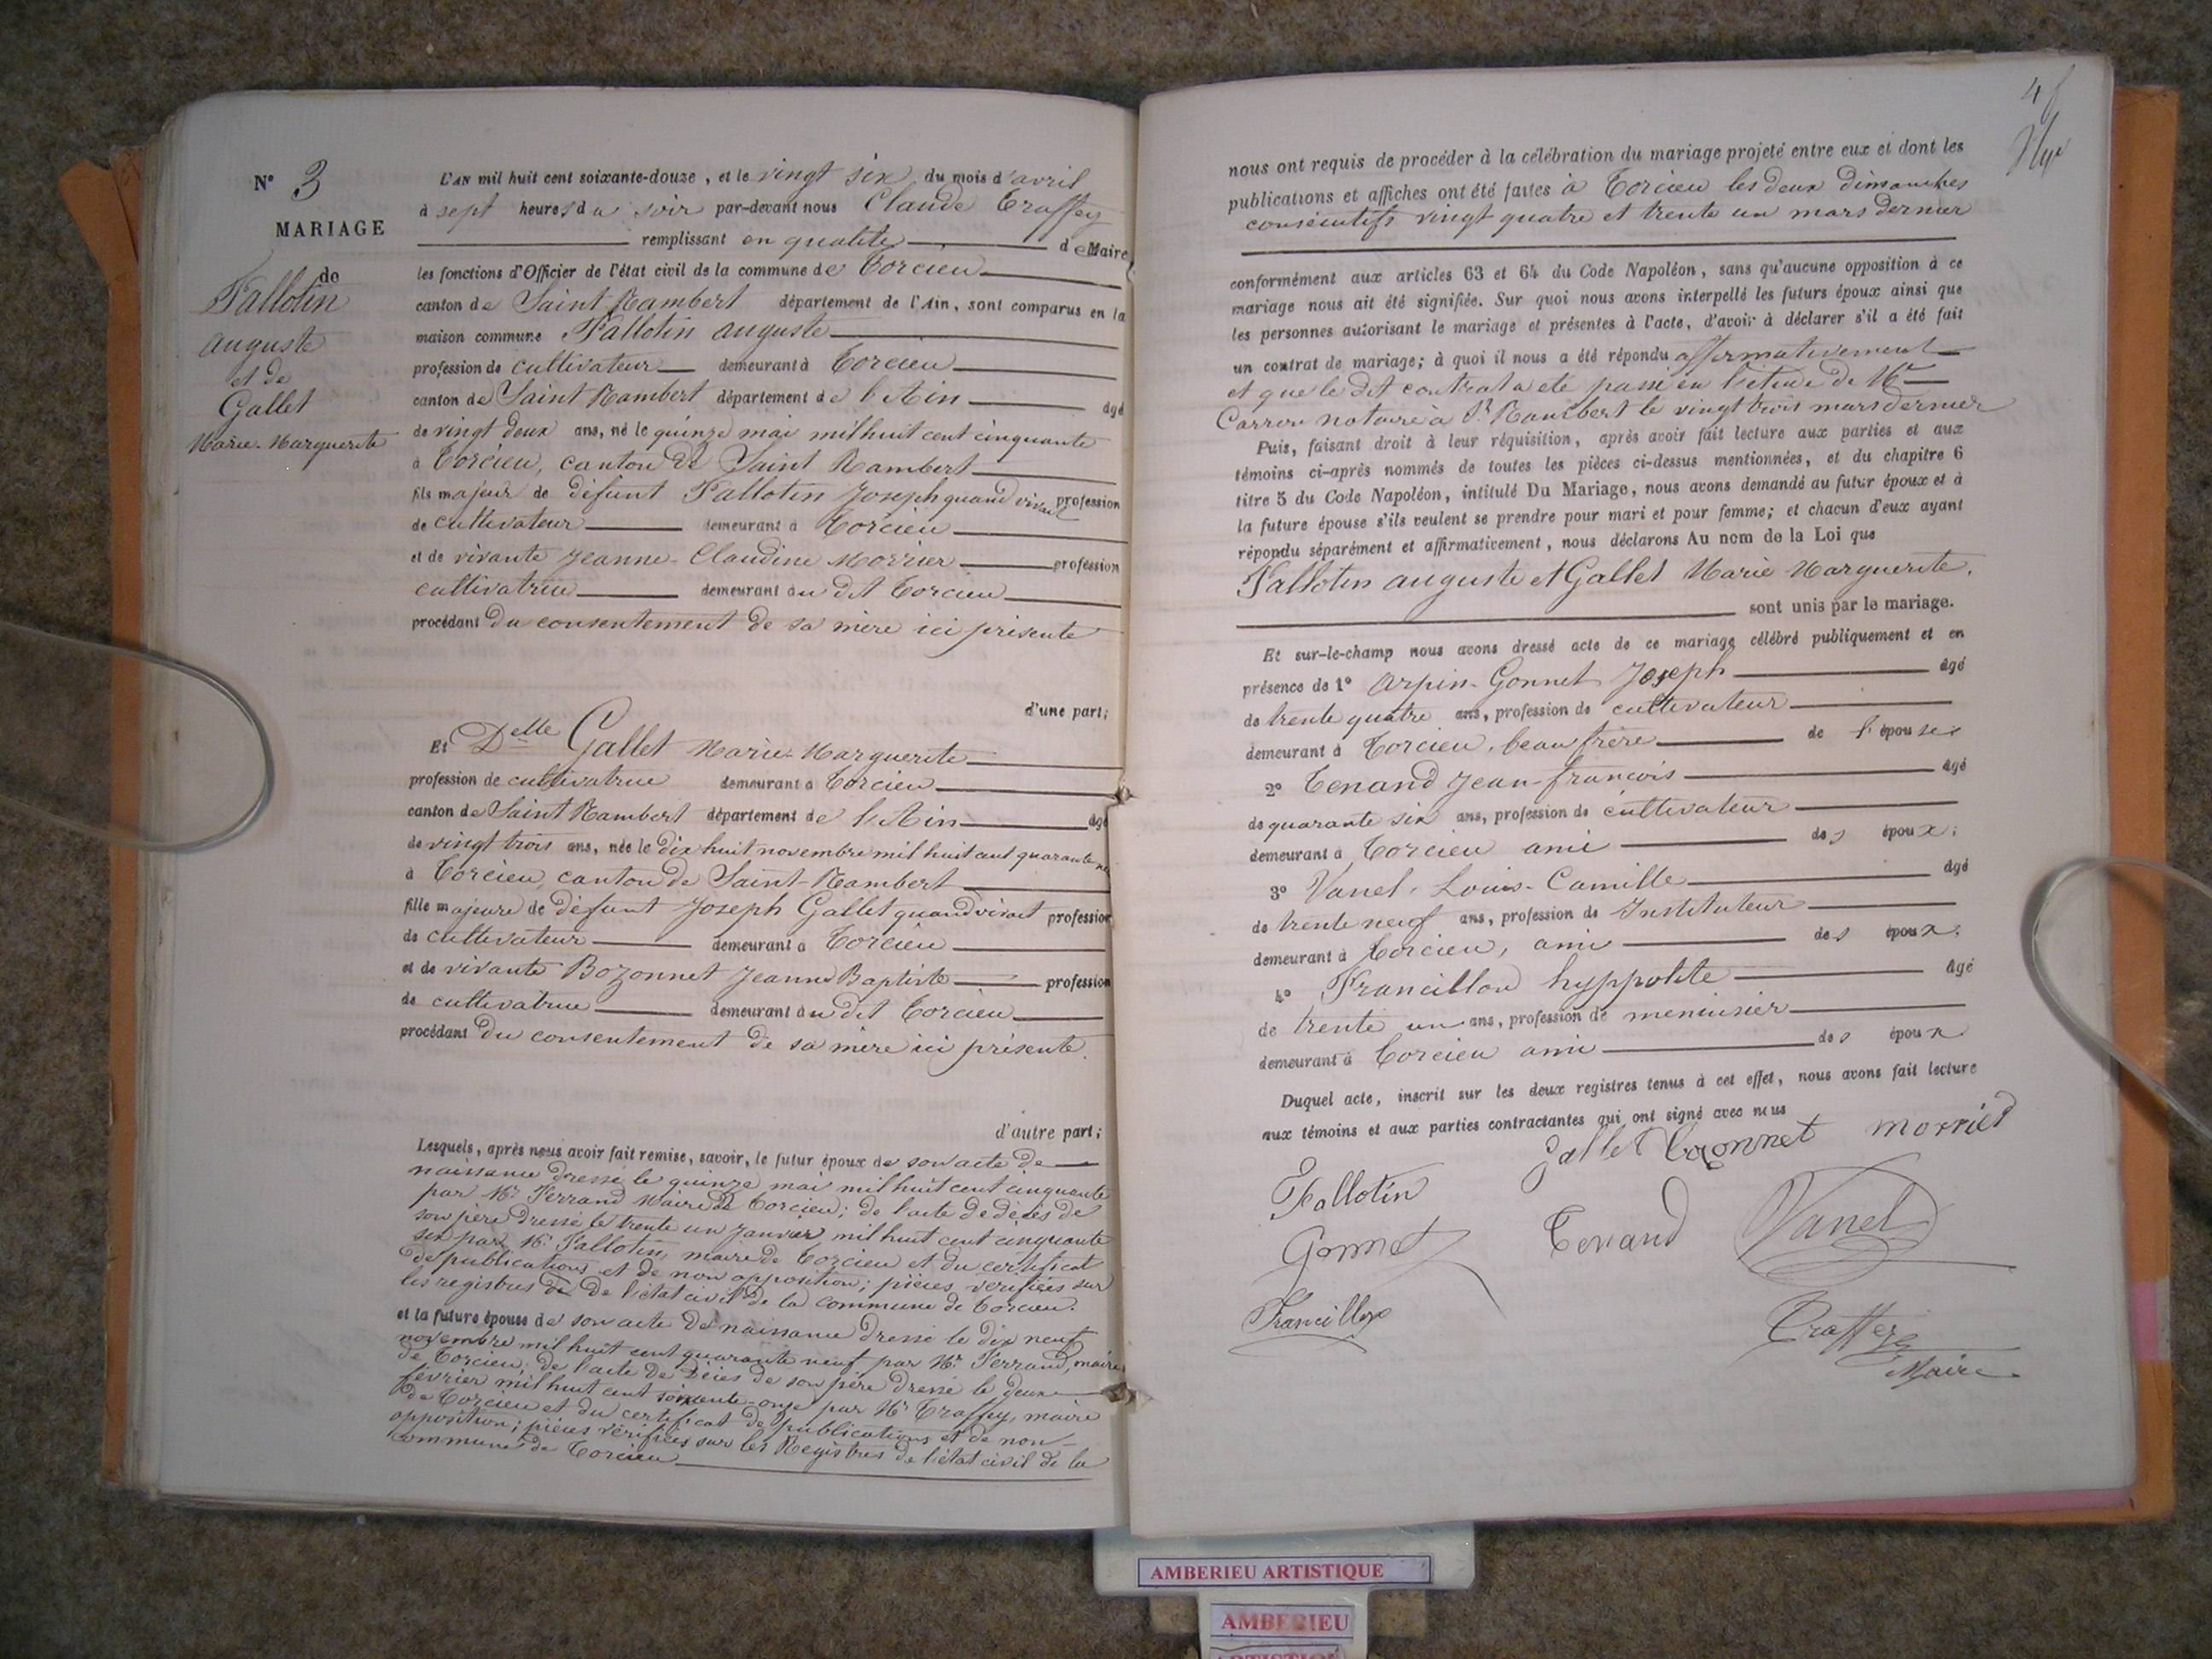 N° 3
MARIAGE
de
Fallotin
auguste
et de
Gallet
Marie-Marguerite
L'AN mil huit cent soixante-douze, et le vingt six du mois d'avril
à sept heures du soir par-devant nous Claude Traffey
remplissant en qualité de Maire
les fonctions d'Officier de l'état civil de la commune de Torcieu
canton de Saint Rambert département de l'Ain, sont comparus en la
maison commune Fallotin auguste
profession de cultivateur demeurant à Torcieu
canton de Saint Rambert département de l'Ain âgé
de vingt deux ans, né le quinze mai mil huit cent cinquante
à Torcieu, canton de Saint Rambert
fils majeur de défunt Fallotin Joseph quand vivait profession
de cultivateur demeurant à Torcieu
et de vivante Jeanne-Claudine Morrier profession
cultivatrice demeurant au dit Torcieu
procédant du consentement de sa mère ici présente
d'une part;
Et Delle Gallet Marie-Marguerite
profession de cultivatrice demeurant à Torcieu
canton de Saint Rambert département de l'Ain âgé
de vingt trois ans, née le dix huit novembre mil huit cent quarante
à Torcieu, canton de Saint-Rambert
fille majeure de défunt Joseph Gallet quand vivait profession
de cultivateur demeurant à Torcieu
et de vivante Bozonnet Jeanne Baptiste profession
de cultivatrice demeurant au dit Torcieu
procédant du consentement de sa mère ici présente.
d'autre part;
Lesquels, après nous avoir fait remise, savoir, le futur époux de son acte de
naissance dressé le quinze mai mil huit cent cinquante
par Mr Ferrand Maire de Torcieu; de l'acte de décès de
son père dressé le trente un Janvier mil huit cent cinquante
six par Mr Fallotin, maire de Torcieu et du certificat
de publications et de non opposition; pièces vérifiées sur
les registres de de l'état civil de la commune de Torcieu.
et la future épouse de son acte de naissance dressé le dix neuf
novembre mil huit cent quarante neuf par Mr Ferrand, maire
de Torcieu; de l'acte de décès de son père dressé le deux
février mil huit cent soixante-onze par Mr Traffey, maire
de Torcieu et du certificat de publications et de non-
opposition; pièces vérifiées sur les Registres de l'état civil de la
commune de Torcieu
4
nous ont requis de procéder à la célébration du mariage projeté entre eux et dont les
publications et affiches ont été faites à Torcieu les deux dimanches
consécutifs vingt quatre et trente un mars dernier
conformément aux articles 63 et 64 du Code Napoléon, sans qu'aucune opposition à ce
mariage nous ait été signifiée. Sur quoi nous avons interpellé les futurs époux ainsi que
les personnes autorisant le mariage et présentes à l'acte, d'avoir à déclarer s'il a été fait
un contrat de mariage; à quoi il nous a été répondu affirmativement
et que le dit contrat a été passé en l'étude de Me
Carrer notaire à St Rambert le vingt trois mars dernier
Puis, faisant droit à leur réquisition, après avoir fait lecture aux parties et aux
témoins ci-après nommés de toutes les pièces ci-dessus mentionnées, et du chapitre 6
titre 5 du Code Napoléon, intitulé Du Mariage, nous avons demandé au futur époux et à
la future épouse s'ils veulent se prendre pour mari et pour femme; et chacun d'eux ayant
répondu séparément et affirmativement, nous déclarons Au nom de la Loi que
Fallotin auguste et Gallet Marie Marguerite.
sont unis par le mariage.
Et sur-le-champ nous avons dressé acte de ce mariage célébré publiquement et en
présence de 1° Arpin-Gonnet Joseph âgé
de trente quatre ans, profession de cultivateur
demeurant à Torcieu, beau frère de l'épouse
2° Tenand Jean-françois âgé
de quarante six ans, profession de cultivateur
demeurant à Torcieu ami des époux;
3° Vanel, Louis-Camille âgé
de trente neuf ans, profession de Instituteur
demeurant à Torcieu, ami des époux.
4° Francillon hyppolite âgé
de trente un ans, profession de menuisier
demeurant à Torcieu ami des époux
Duquel acte, inscrit sur les deux registres tenus à cet effet, nous avons fait lecture
aux témoins et aux parties contractantes qui ont signé avec nous
gallet bozonnet morriet
Fallotin
Gonnet Tenand Vanel
Francillon
Traffey
Maire
AMBERIEU ARTISTIQUE
AMBERIEU
ARTISTIQUE